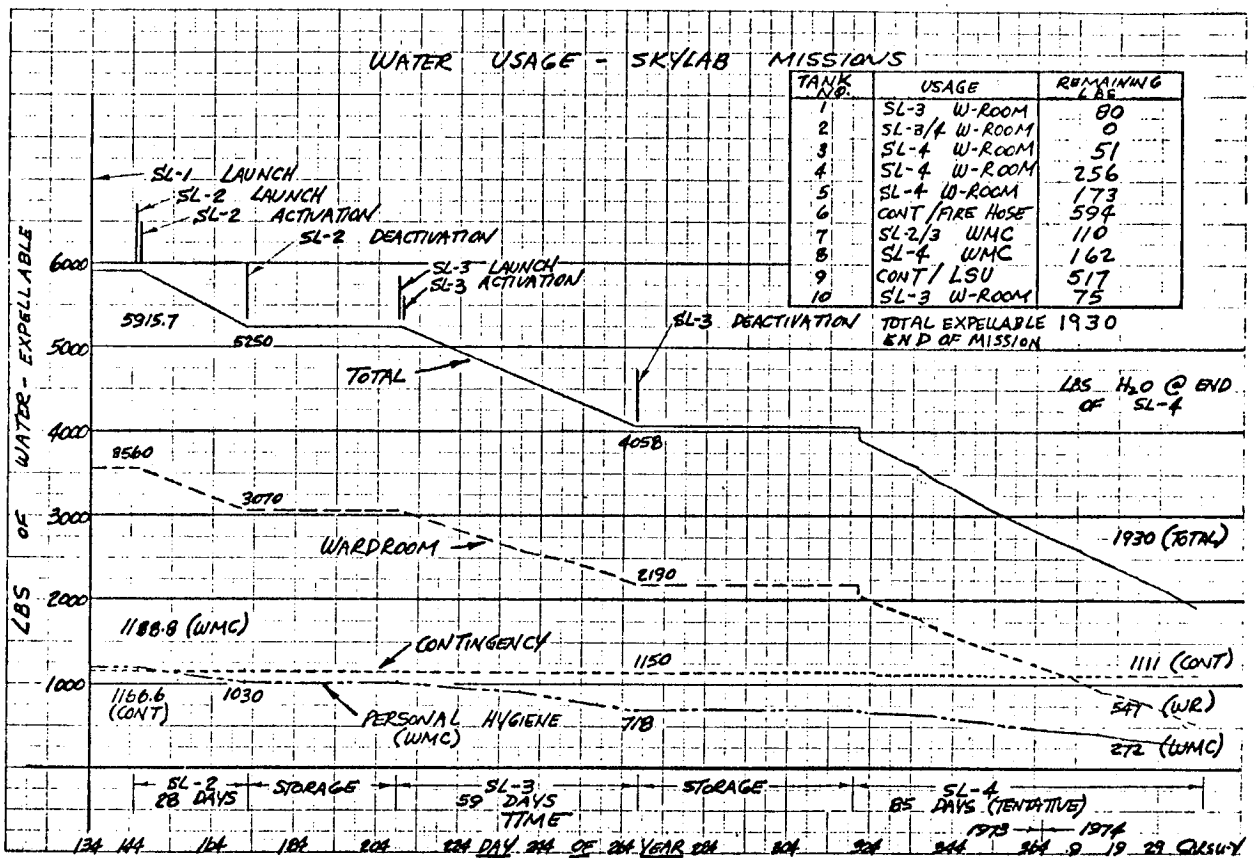 WATER USAGE - SKYLAB MISSIONS
TANK NO. USAGE REMAINING LBS
1 SL-3 W-ROOM 80
2 SL-3/4 W-ROOM 0
3 SL-4 W-ROOM 51
4 SL-4 W-ROOM 256
5 SL-4 W-ROOM 173
6 CONT/FIRE HOSE 594
7 SL-2/3 WMC 110
8 SL-4 WMC 162
9 CONT/LSU 517
10 SL-3 W-ROOM 75
TOTAL EXPELLABLE 1930
END OF MISSION
SL-1 LAUNCH
SL-2 LAUNCH
SL-2 ACTIVATION
SL-2 DEACTIVATION
SL-3 LAUNCH
SL-3 ACTIVATION
SL-3 DEACTIVATION
LBS H2O @ END
OF SL-4
LBS OF WATER - EXPELLABLE
6000
5000
4000
3000
2000
1000
5915.7
5250
TOTAL
4058
3560
3070
WARDROOM
2190
1930 (TOTAL)
1188.8 (WMC)
CONTINGENCY
1150
1111 (CONT)
1166.6
(CONT)
1030
PERSONAL HYGIENE
(WMC)
718
547 (WR)
272 (WMC)
SL-2
28 DAYS
STORAGE
SL-3
59 DAYS
STORAGE
SL-4
85 DAYS (TENTATIVE)
TIME
1973 1974
134 144 164 184 204 224 DAY 244 OF 264 YEAR 284 304 324 344 364 9 19 29